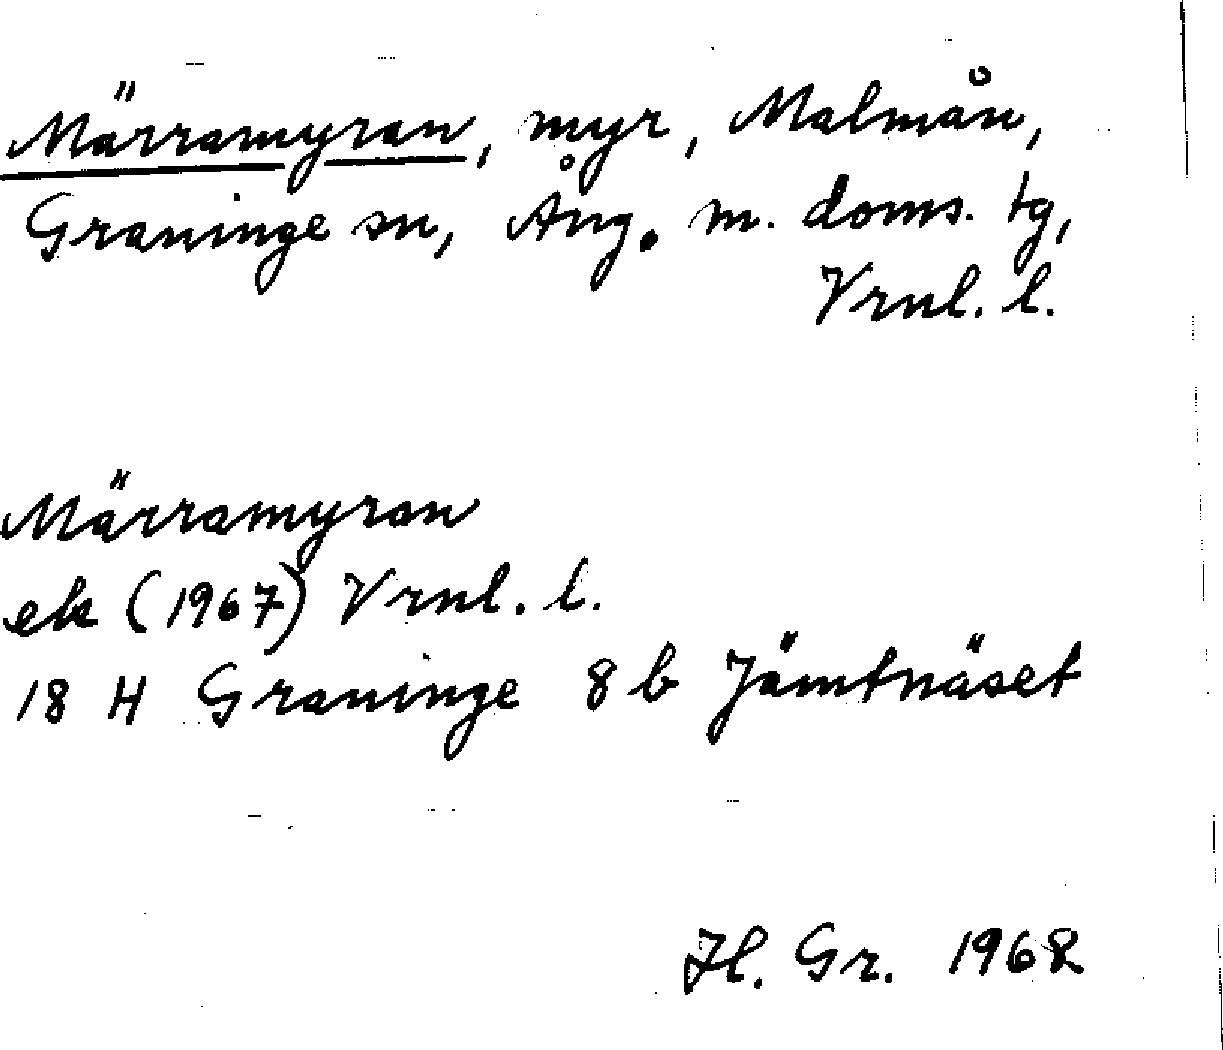 Märramyran, myr, Malmån,
Graninge sn, Ång. m. doms. tg,
Vrnl. l.
Märramyran
ek (1967) Vrnl. l.
18 H Graninge 8 b Jämtnäset
Hl. Gr. 1968